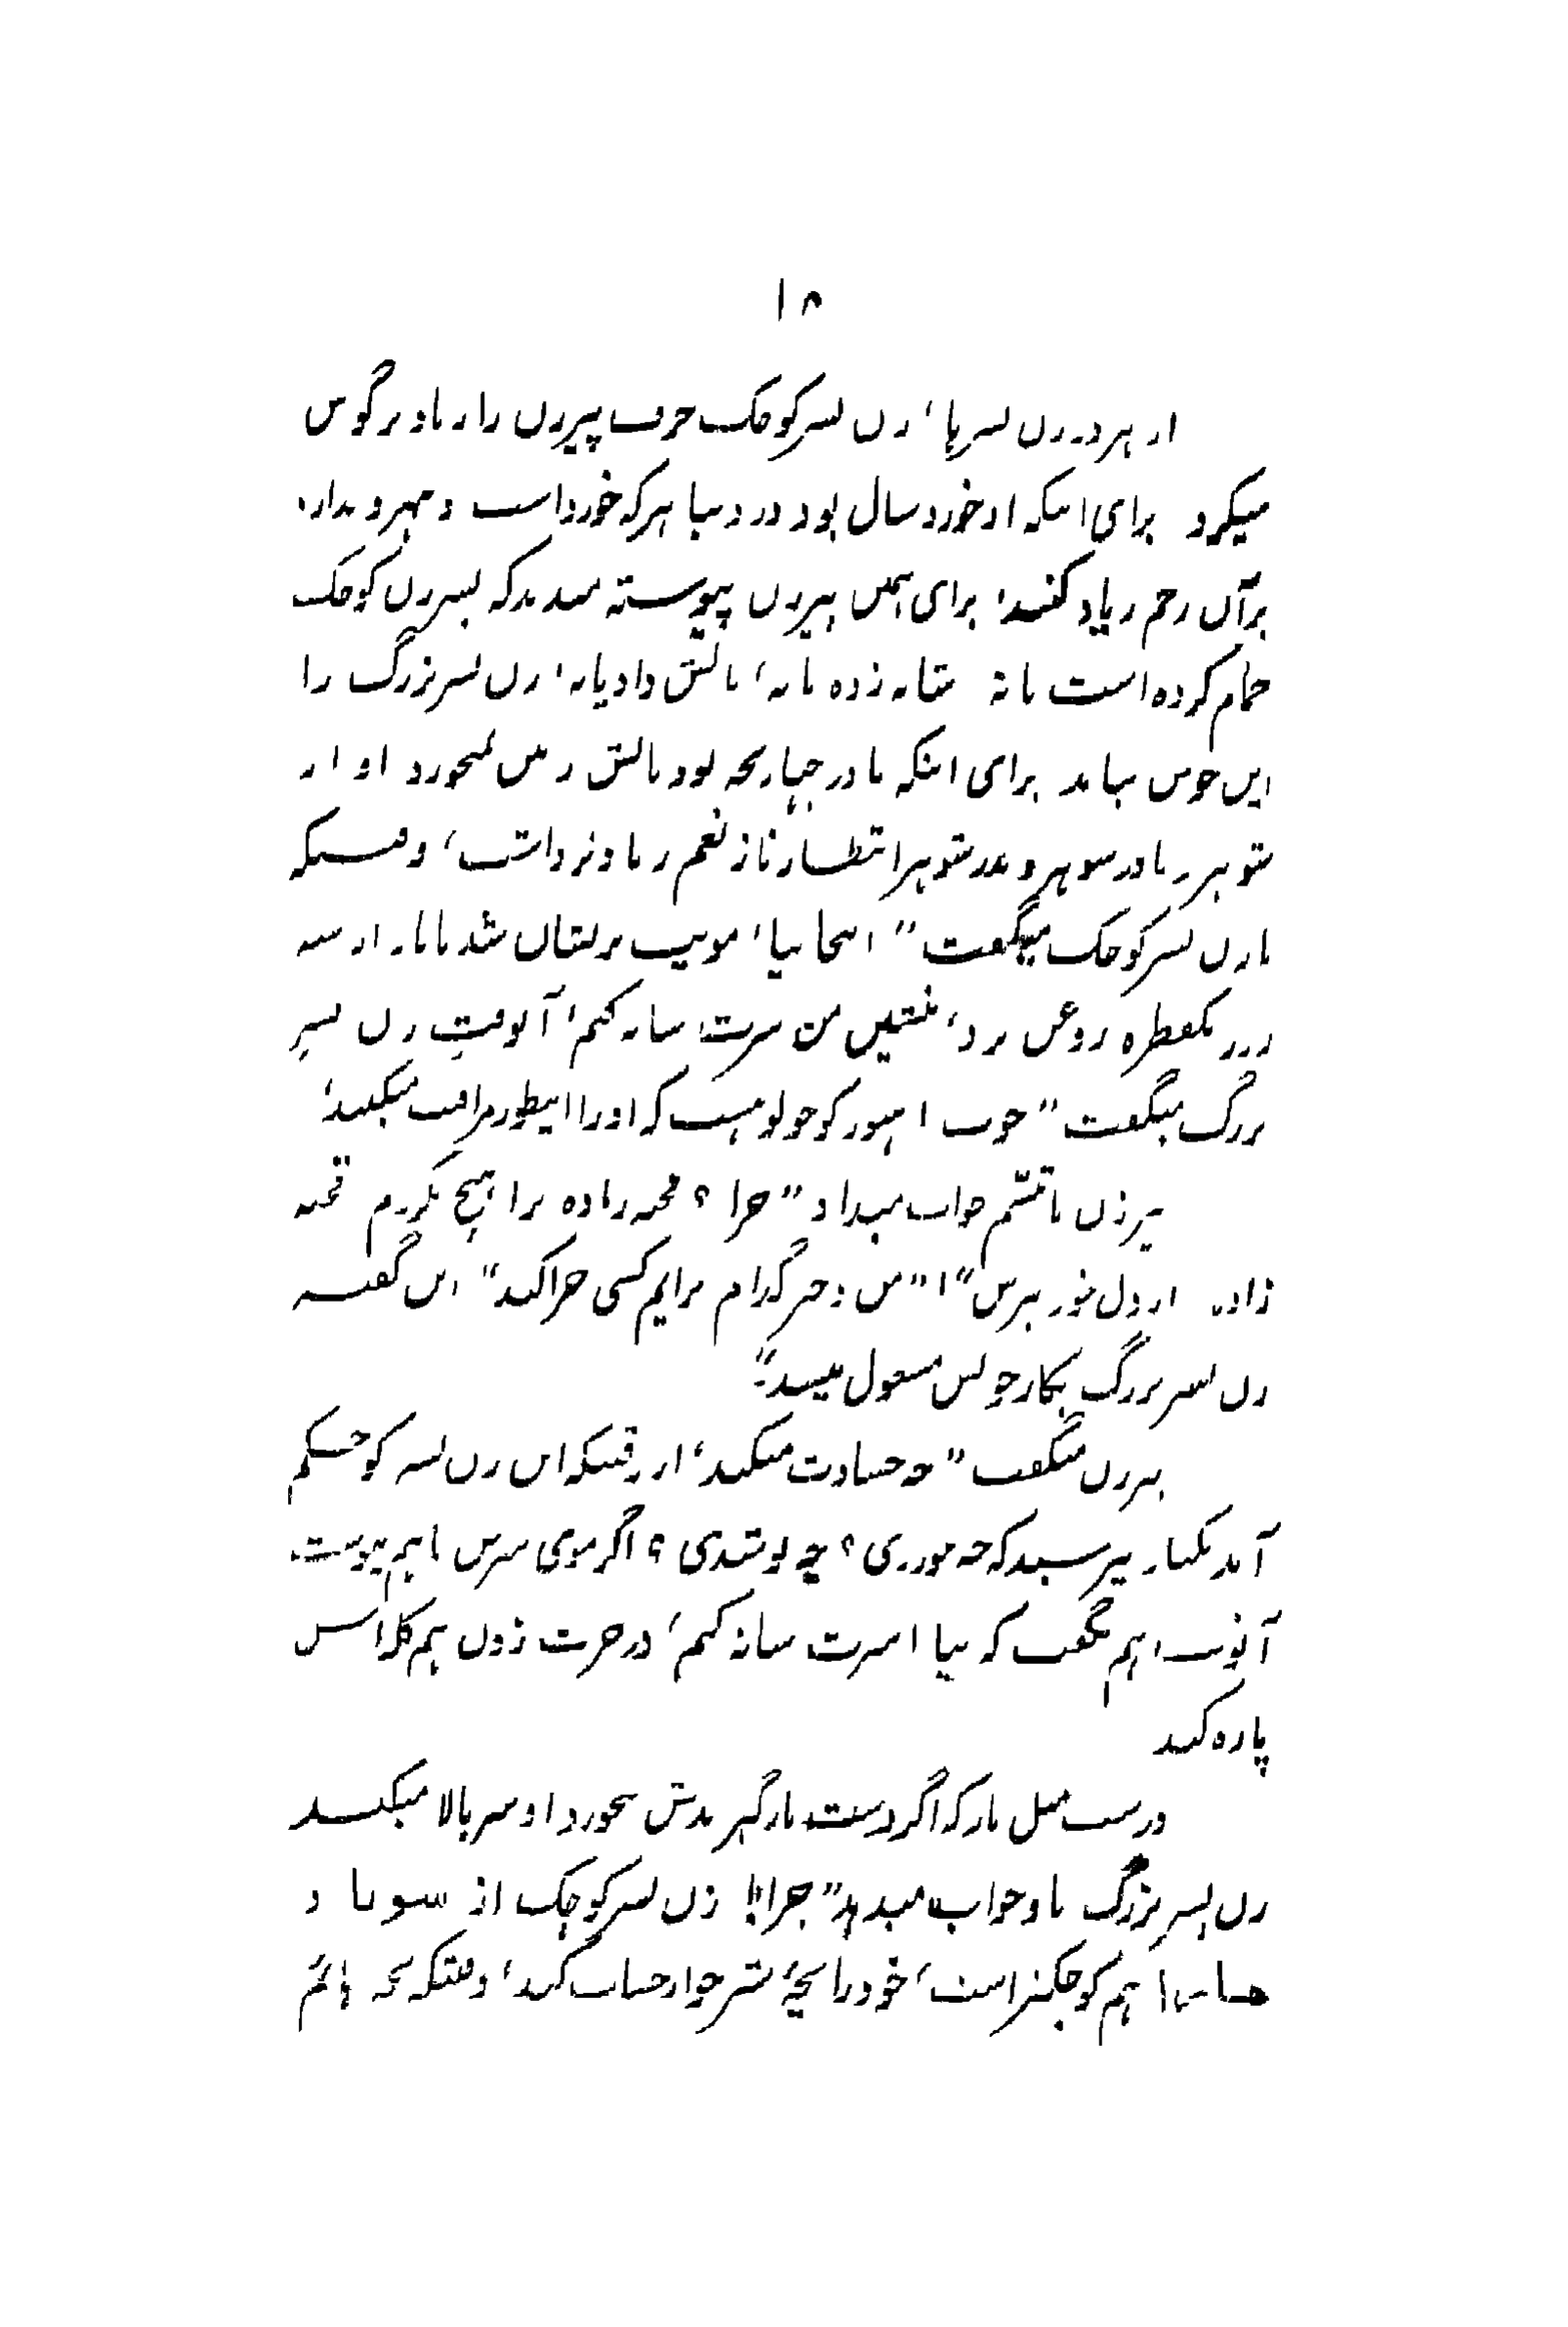 ۱۸
از هر دو زن پسرها، زن پسر کوچک حرف پیرزن را زیادتر گوش
میکرد برای اینکه او خوردسال بود در دنیا هر که خورد است
برآن رحم زیاد کنند، برای همین پیرزن پیوسته میدید که پسر زن کوچک
حمام کرده است یا نه شانه زده یا نه، بالش داد یا نه، زن پسر بزرگ را
این خوش نیامد برای اینکه مادر چهار بچه بود بالش زمین نمیخورد او از
شوهر، مادر شوهر و پدر شوهر انتظار ناز نعم زیاد نداشت، وقتیکه
با زن پسر کوچک میگفت "اینجا بیا، مویت پریشان شد
یکقطره روغن نزد، بنشین من سرت شانه کنم، آنوقت زن پسر
بزرگ میگفت "خوب که او را اینطور مراقبت میکنید،
پیرزن با تبسم جواب میداد "چرا؟ قحبه زاده ترا هیچ نکردم قحبه
زاده از دل خود بپرس"، "من دختر کدام برایم کسی چرا کند" این گفته
زن پسر بزرگ بکار خویش مشغول میشد"
پیرزن میگفت "چه حسادت میکند، از وقتیکه این زن پسر کوچکم
آمد یکبار نپرسید که چه خوردی؟ چه پوشیدی؟ اگر موی سرش باهم پیوست
آنوقت هم نگفت که بیا سرت شانه کنم، در حرف زدن هم
پاره کند
درست مثل مار که اگر دست مارگیر بدنش بخورد او سر بالا میکند
زن پسر بزرگ باو جواب میدهد "چرا؟ زن پسر کوچک از
هم کوچکتر است، خود را بچهٔ شیرخوار حساب کند، وقتیکه بچه هایم